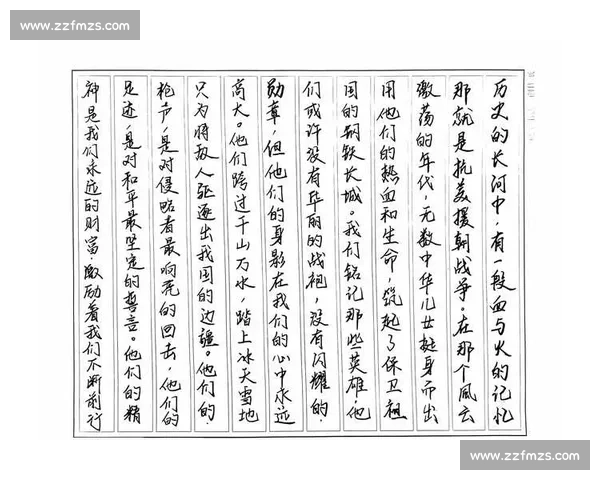 www.zzfmzs.com
历史的长河中，有一段血与火的记忆
那就是抗美援朝战争。在那个风云
激荡的年代，无数中华儿女挺身而出
用他们的热血和生命，筑起了保卫祖
国的钢铁长城。我们铭记那些英雄，他
们或许没有华丽的战袍，没有闪耀的
勋章，但他们的身影在我们的心中永远
高大。他们跨过千山万水，踏上冰天雪地
只为将敌人驱逐出我国的边疆。他们的
枪声，是对侵略者最响亮的回击，他们的
足迹，是对和平最坚定的誓言。他们的精
神是我们永远的财富，激励着我们不断前行
www.zzfmzs.com